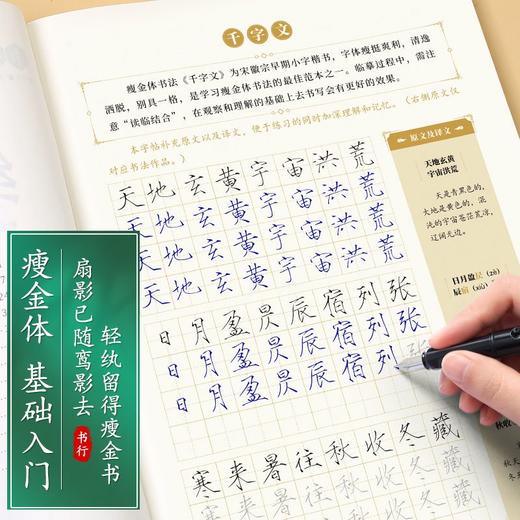 千字文
瘦金体书法《千字文》为宋徽宗早期小字楷书，字体瘦挺爽利，清逸
洒脱，别具一格，是学习瘦金体书法的最佳范本之一。临摹过程中，需注
意“读临结合”，在观察和理解的基础上去书写会有更好的效果。
本字帖补充原文以及译文，便于练习的同时加深理解和记忆。（右侧原文仅
对应书法作品。）
天地玄黄宇宙洪荒
天地玄黄宇宙洪荒
天地玄黄宇宙洪荒
天地玄黄宇宙洪荒
日月盈昃辰宿列张
日月盈昃辰宿列张
日月盈昃辰宿列张
寒来暑往秋收冬藏
寒来暑往秋收冬藏
原文及译文
天地玄黄
宇宙洪荒
天是青黑色的，
大地是黄色的，混
沌的宇宙苍茫荒凉，
辽阔无边。
日月盈昃（zè）
辰宿（xiù）
秋收
秋天
冬天
瘦金体 基础入门
扇影已随鸾影去
轻纨留得瘦金书
书行